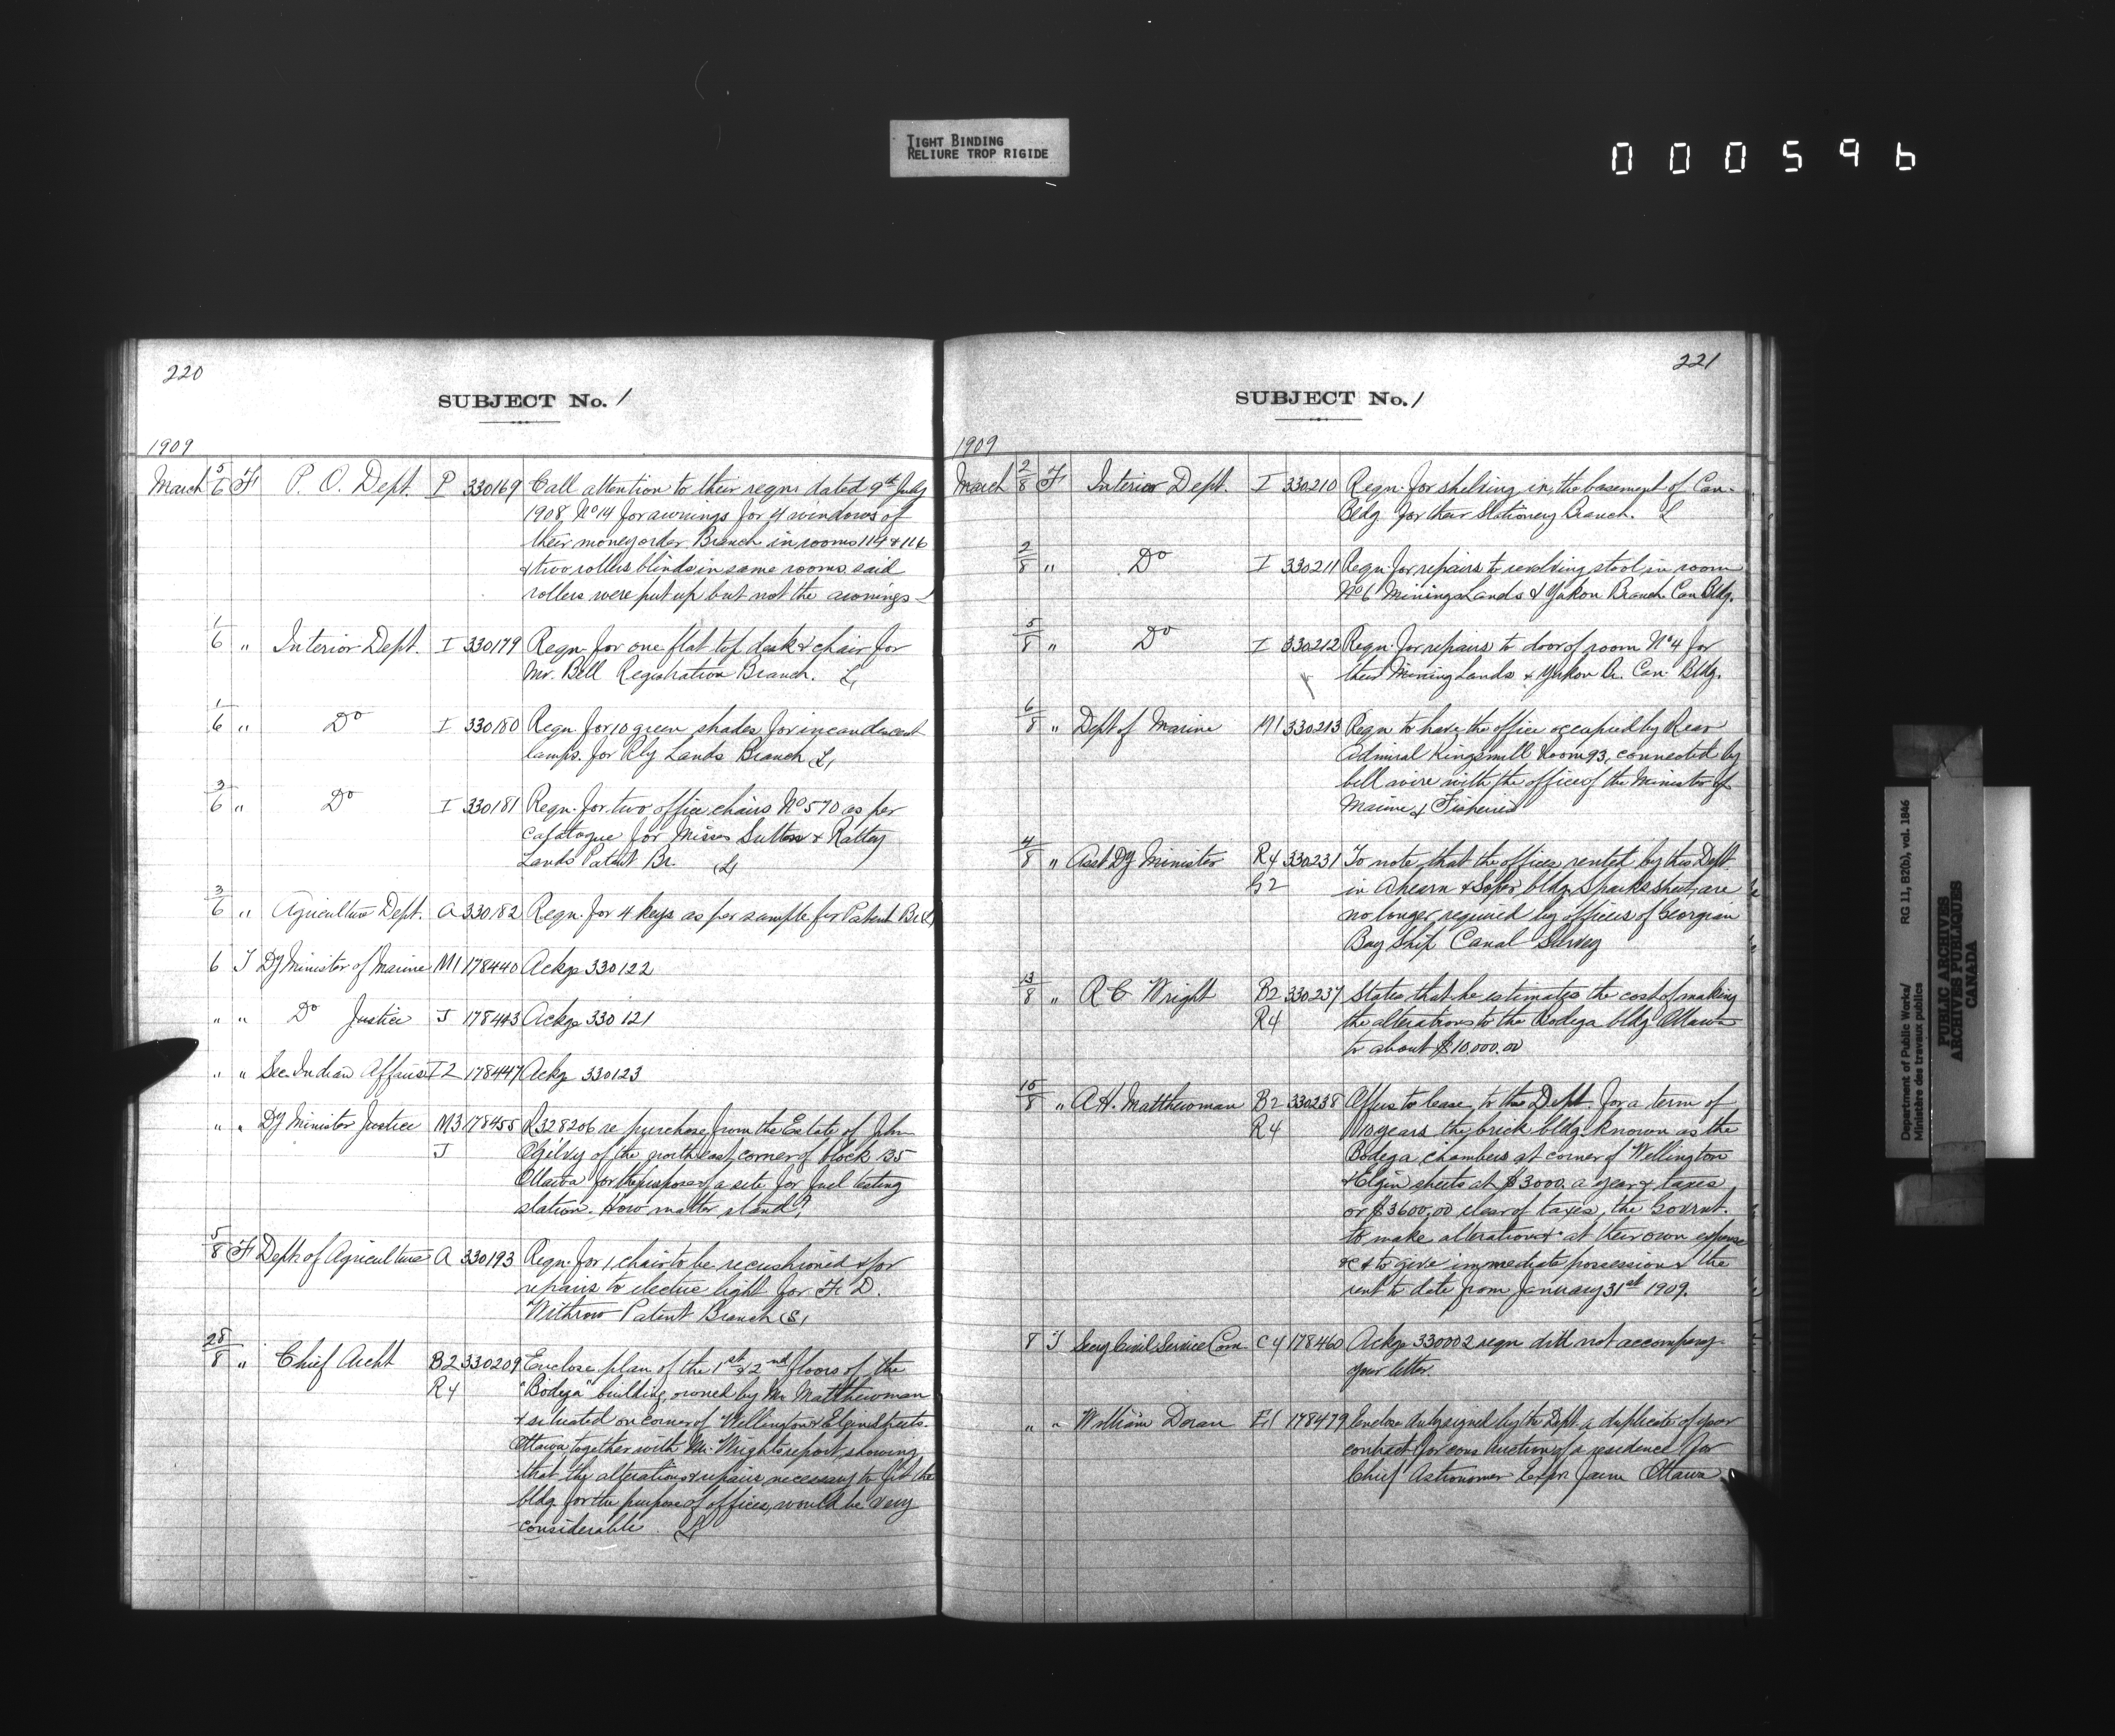 TIGHT BINDING
RELIURE TROP RIGIDE
000596
220
SUBJECT No. 1
1909
March 5/6 F P. O. Dept. P 330169 Call attention to their reqn. dated 9th July
1908 No 14 for awnings for 4 windows of
their money order Branch in rooms 114 & 116
& two rollers blinds in same rooms said
rollers were put up but not the awnings
1/6 " Interior Dept. I 330179 Reqn. for one flat top desk & chair for
Mr. Bell Registration Branch. L
1/6 " Do I 330180 Reqn. for 10 green shades for incandescent
lamps. for Rly Lands Branch L
3/6 " Do I 330181 Reqn. for two office chairs No 570 as per
catalogue for Misses Sutton &
Lands Patent Br. L
3/6 " Agriculture Dept. A 330182 Reqn. for 4 keys as per sample for Patent Br. L
6 T Dy Minister of Marine M1 178440 Ackge 330122
" " Do Justice J 178443 Ackge 330121
" " Sec. Indian Affairs I2 178447 Ackge 330123
" " Dy Minister Justice M3 178455 R328206 re purchase from the Estate of John
J Ogilvy of the north east corner of block B5
Ottawa for the purpose of a site for fuel testing
station. How matter stand?
5/8 F Dept. of Agriculture A 330193 Reqn. for 1 chair to be recushioned & for
repairs to electric light for F. D.
Withrow Patent Branch
28/8 " Chief Archt B2 330209 Enclose plan of the 1st & 2nd floors of the
R4 "Bodega" building owned by Mr Matthewman
& situated on corner of Wellington & Elgin Streets.
Ottawa together with Mr. Wright's report showing
that the alterations & repairs necessary to fit the
bldg for the purpose of offices, would be very
considerable. L
221
SUBJECT No. 1
1909
March 2/8 F Interior Dept. I 330210 Reqn. for shelving in the basement of Can.
Bldg. for their Stationery Branch. L
2/8 " Do I 330211 Reqn. for repairs to revolving stool in room
No 6 Mining Lands & Yukon Branch Can Bldg.
5/8 " Do I 330212 Reqn. for repairs to door of room No 4 for
their Mining Lands & Yukon Br. Can. Bldg.
6/8 " Dept of Marine M1 330213 Reqn to have the office occupied by Rear
Admiral Kingsmill Room 93, connected by
bell wire with the office of the Minister of
Marine & Fisheries
4/8 " Asst Dy Minister R4 330231 To note that the offices rented by this Dept
G2 in Ahearn & Soper bldg Sparks street, are
no longer required by offices of Georgian
Bay Ship Canal Survey
13/8 " R C Wright B2 330237 States that he estimates the cost of making
R4 the alterations to the Bodega bldg Ottawa
to about $10,000.00
10/8 " A.H. Matthewman B2 330238 Offers to lease, to the Dept. for a term of
R4 10 years the brick bldg. known as the
Bodega chambers at corner of Wellington
& Elgin streets at $3000. a year & taxes
or $3600.00 clear of taxes, the Govrnt.
to make alterations &c at their own expense
&c & to give immediate possession & the
rent to date from January 31st 1909.
8 T Secy Civil Service Com. C4 178460 Ackge 330002 reqn. did not accompany
your letter.
" " William Doran E1 178479 Enclose duly signed by the Dept. a duplicate of your
contract for construction of a residence for
Chief Astronomer Expr. Farm Ottawa
Department of Public Works/
Ministère des travaux publics
RG 11, B2(b), vol. 1846
PUBLIC ARCHIVES
ARCHIVES PUBLIQUES
CANADA